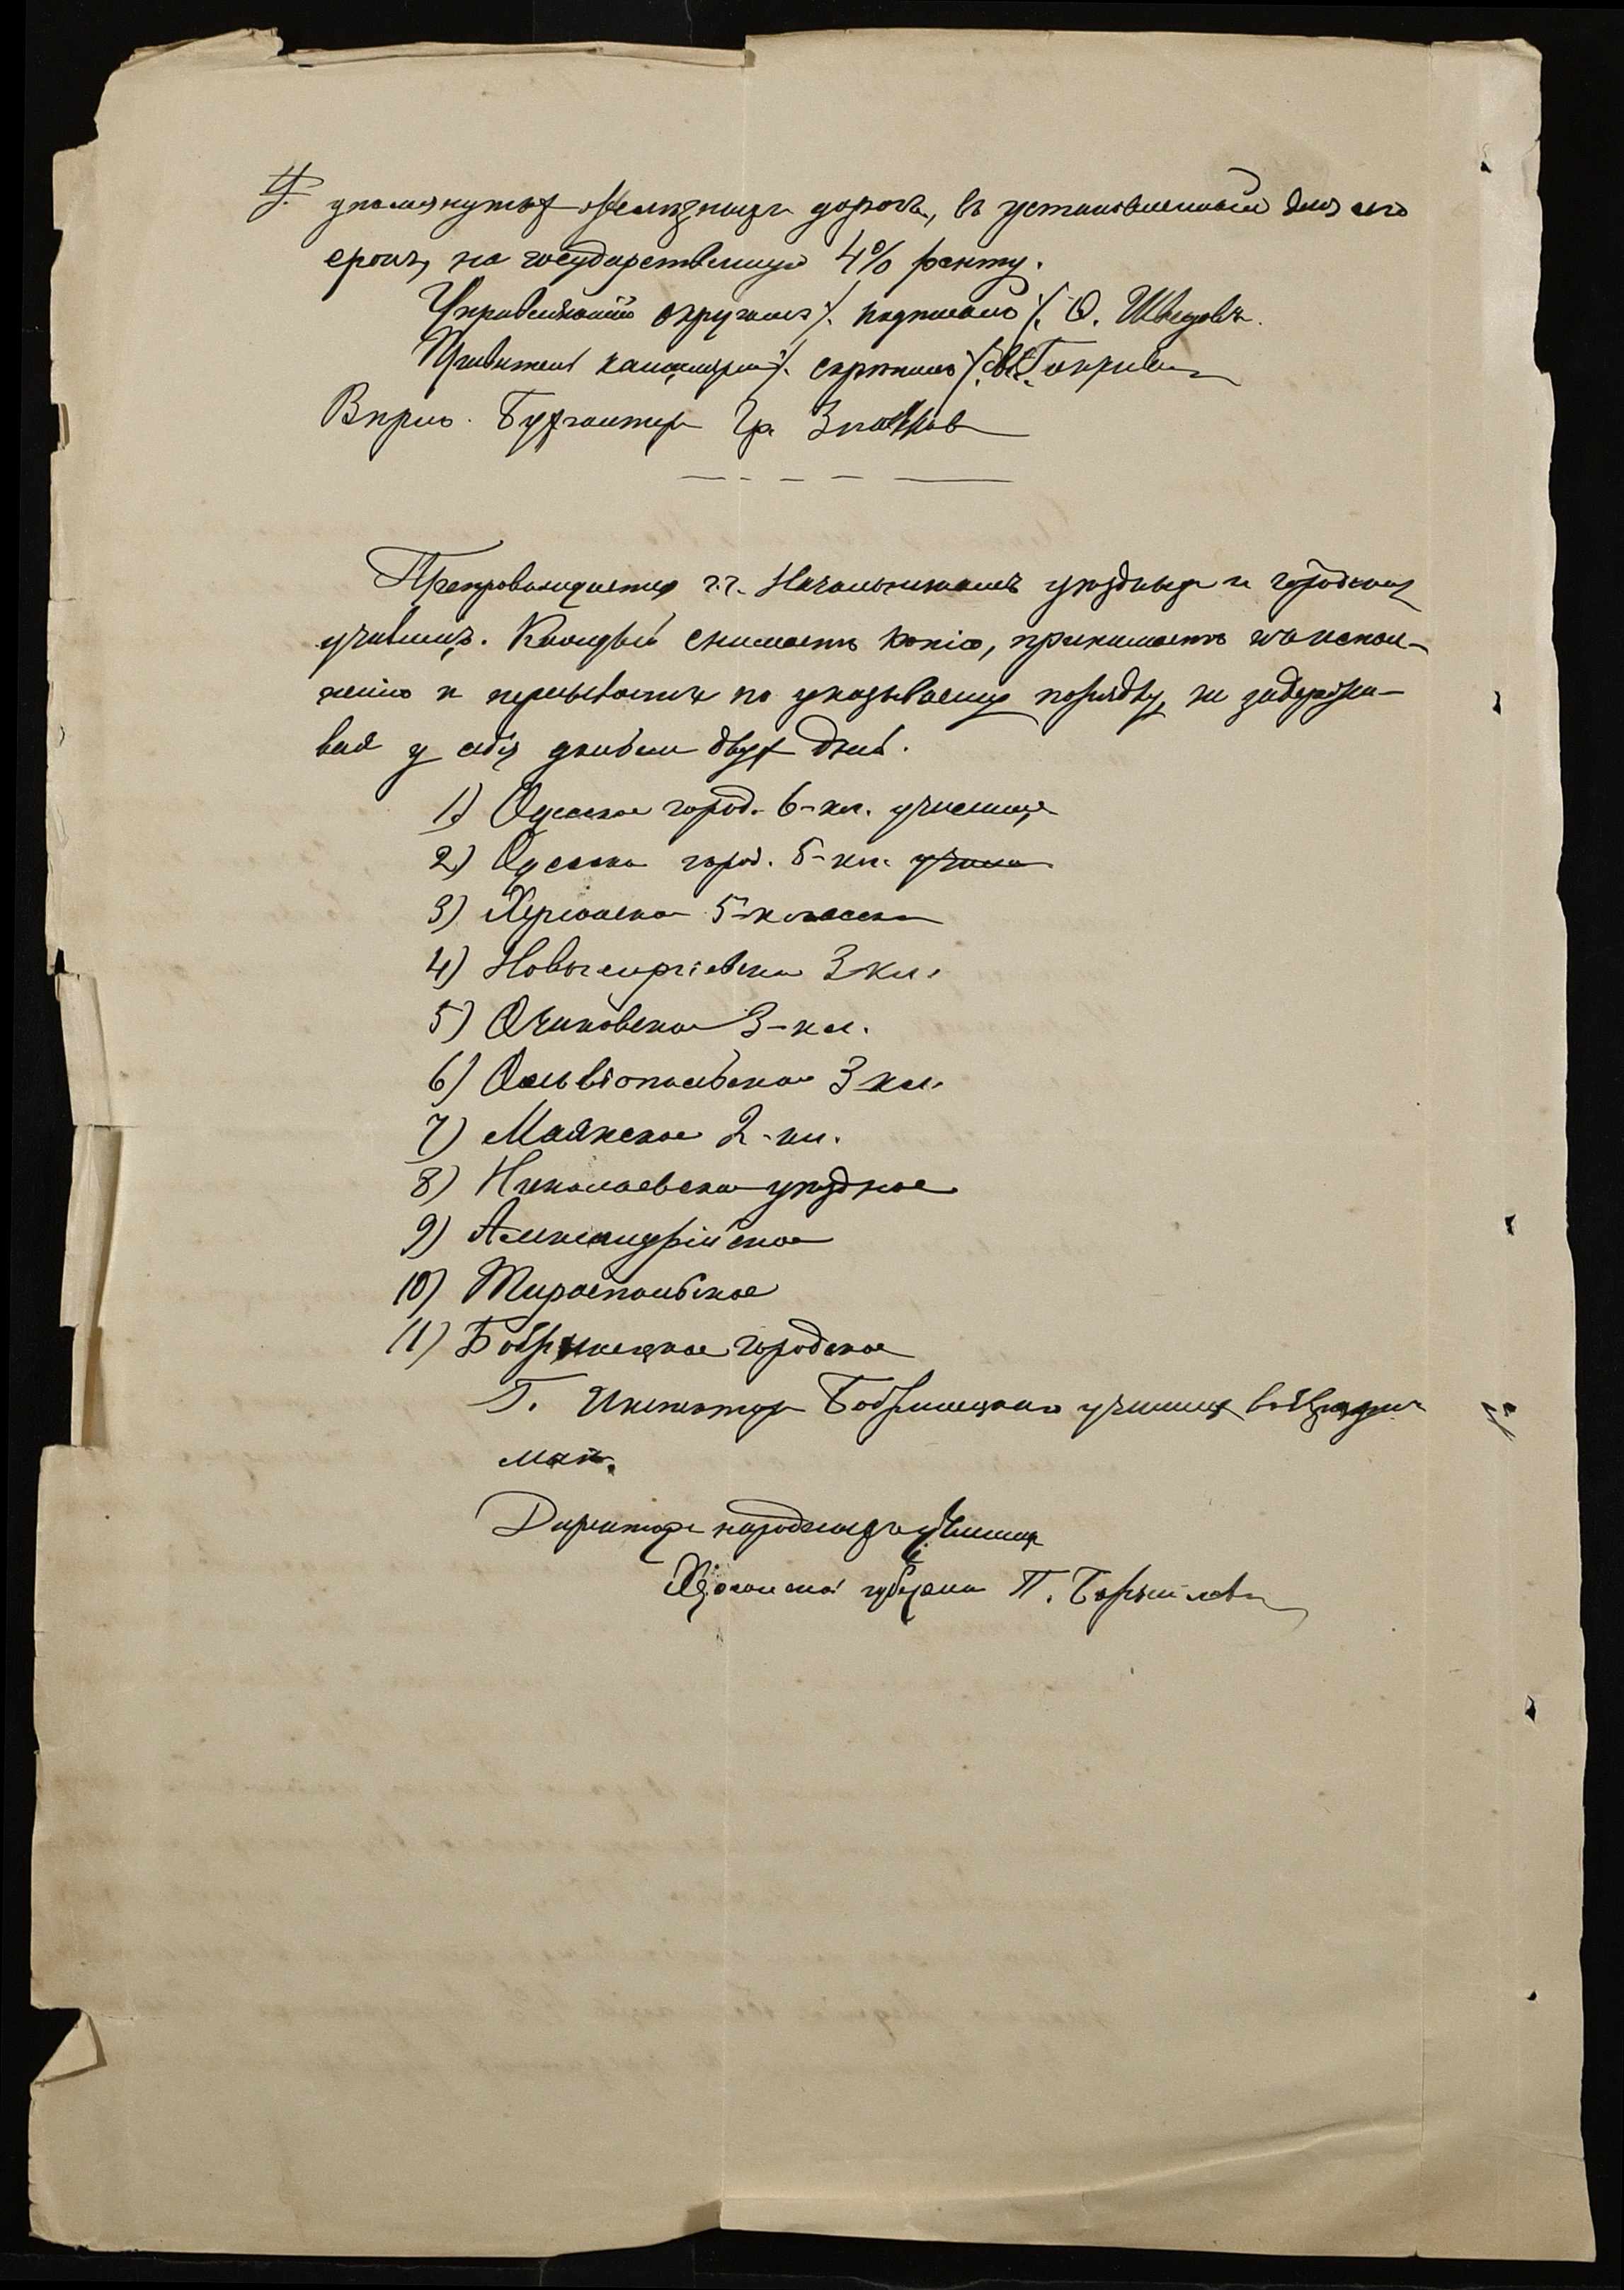 упомянутыхъ желѣзныхъ дорогъ, въ установленный для сего
срокъ, на государственную 4% ренту.
Управляющій округомъ /. подписалъ /. Ѳ. Шведовъ.
Правитель канцеляріи /. скрѣпилъ /.
Вѣрно. Бухгалтеръ Гр.
Препровождается г.г. Начальникамъ уѣздныхъ и городскихъ
училищъ. Каждый снимаетъ копію, принимаетъ къ испол-
ненію и пересылаетъ по указываемому порядку, не задержи-
вая у себя долѣе двухъ дней.
1) Одесское город. 6-кл. училище
2) Одесское город. 5-кл. училище
3) Херсонское 5-классное
4) Новогеоргіевское 3 кл.
5) Очаковское 3-кл.
6) Ольвіопольское 3 кл.
7) Маякское 2-кл.
8) Николаевское уѣздное
9) Александрійское
10) Тираспольское
11) Бобринецкое городское
Г. Инспекторъ Бобринецкаго училища возвратитъ
мнѣ.
Директоръ народныхъ училищъ
Херсонской губерніи П.